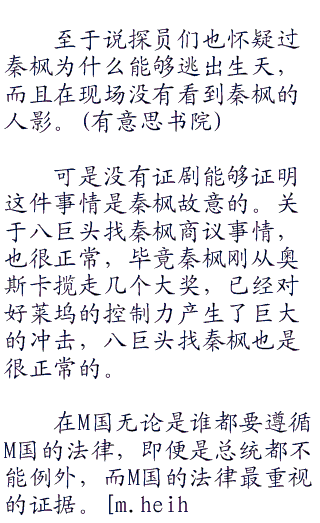 至于说探员们也怀疑过
秦枫为什么能够逃出生天，
而且在现场没有看到秦枫的
人影。(有意思书院)
可是没有证剧能够证明
这件事情是秦枫故意的。关
于八巨头找秦枫商议事情，
也很正常，毕竟秦枫刚从奥
斯卡揽走几个大奖，已经对
好莱坞的控制力产生了巨大
的冲击，八巨头找秦枫也是
很正常的。
在M国无论是谁都要遵循
M国的法律，即便是总统都不
能例外，而M国的法律最重视
的证据。[m.heih